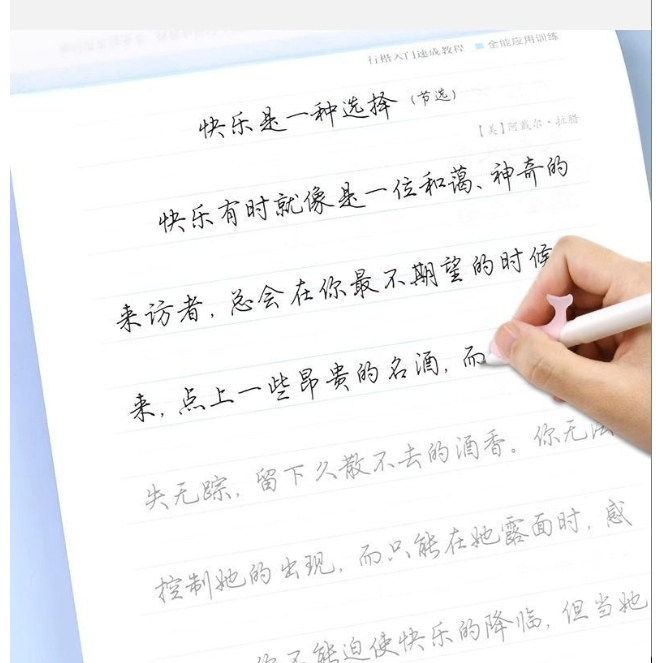 行楷入门速成教程 全能应用训练
快乐是一种选择（节选）
【美】阿戴尔·拉腊
快乐有时就像是一位和蔼、神奇的
来访者，总会在你最不期望的时候
来，点上一些昂贵的名酒，而
失无踪，留下久散不去的酒香。你无法
控制她的出现，而只能在她露面时，感
你不能迫使快乐的降临，但当她